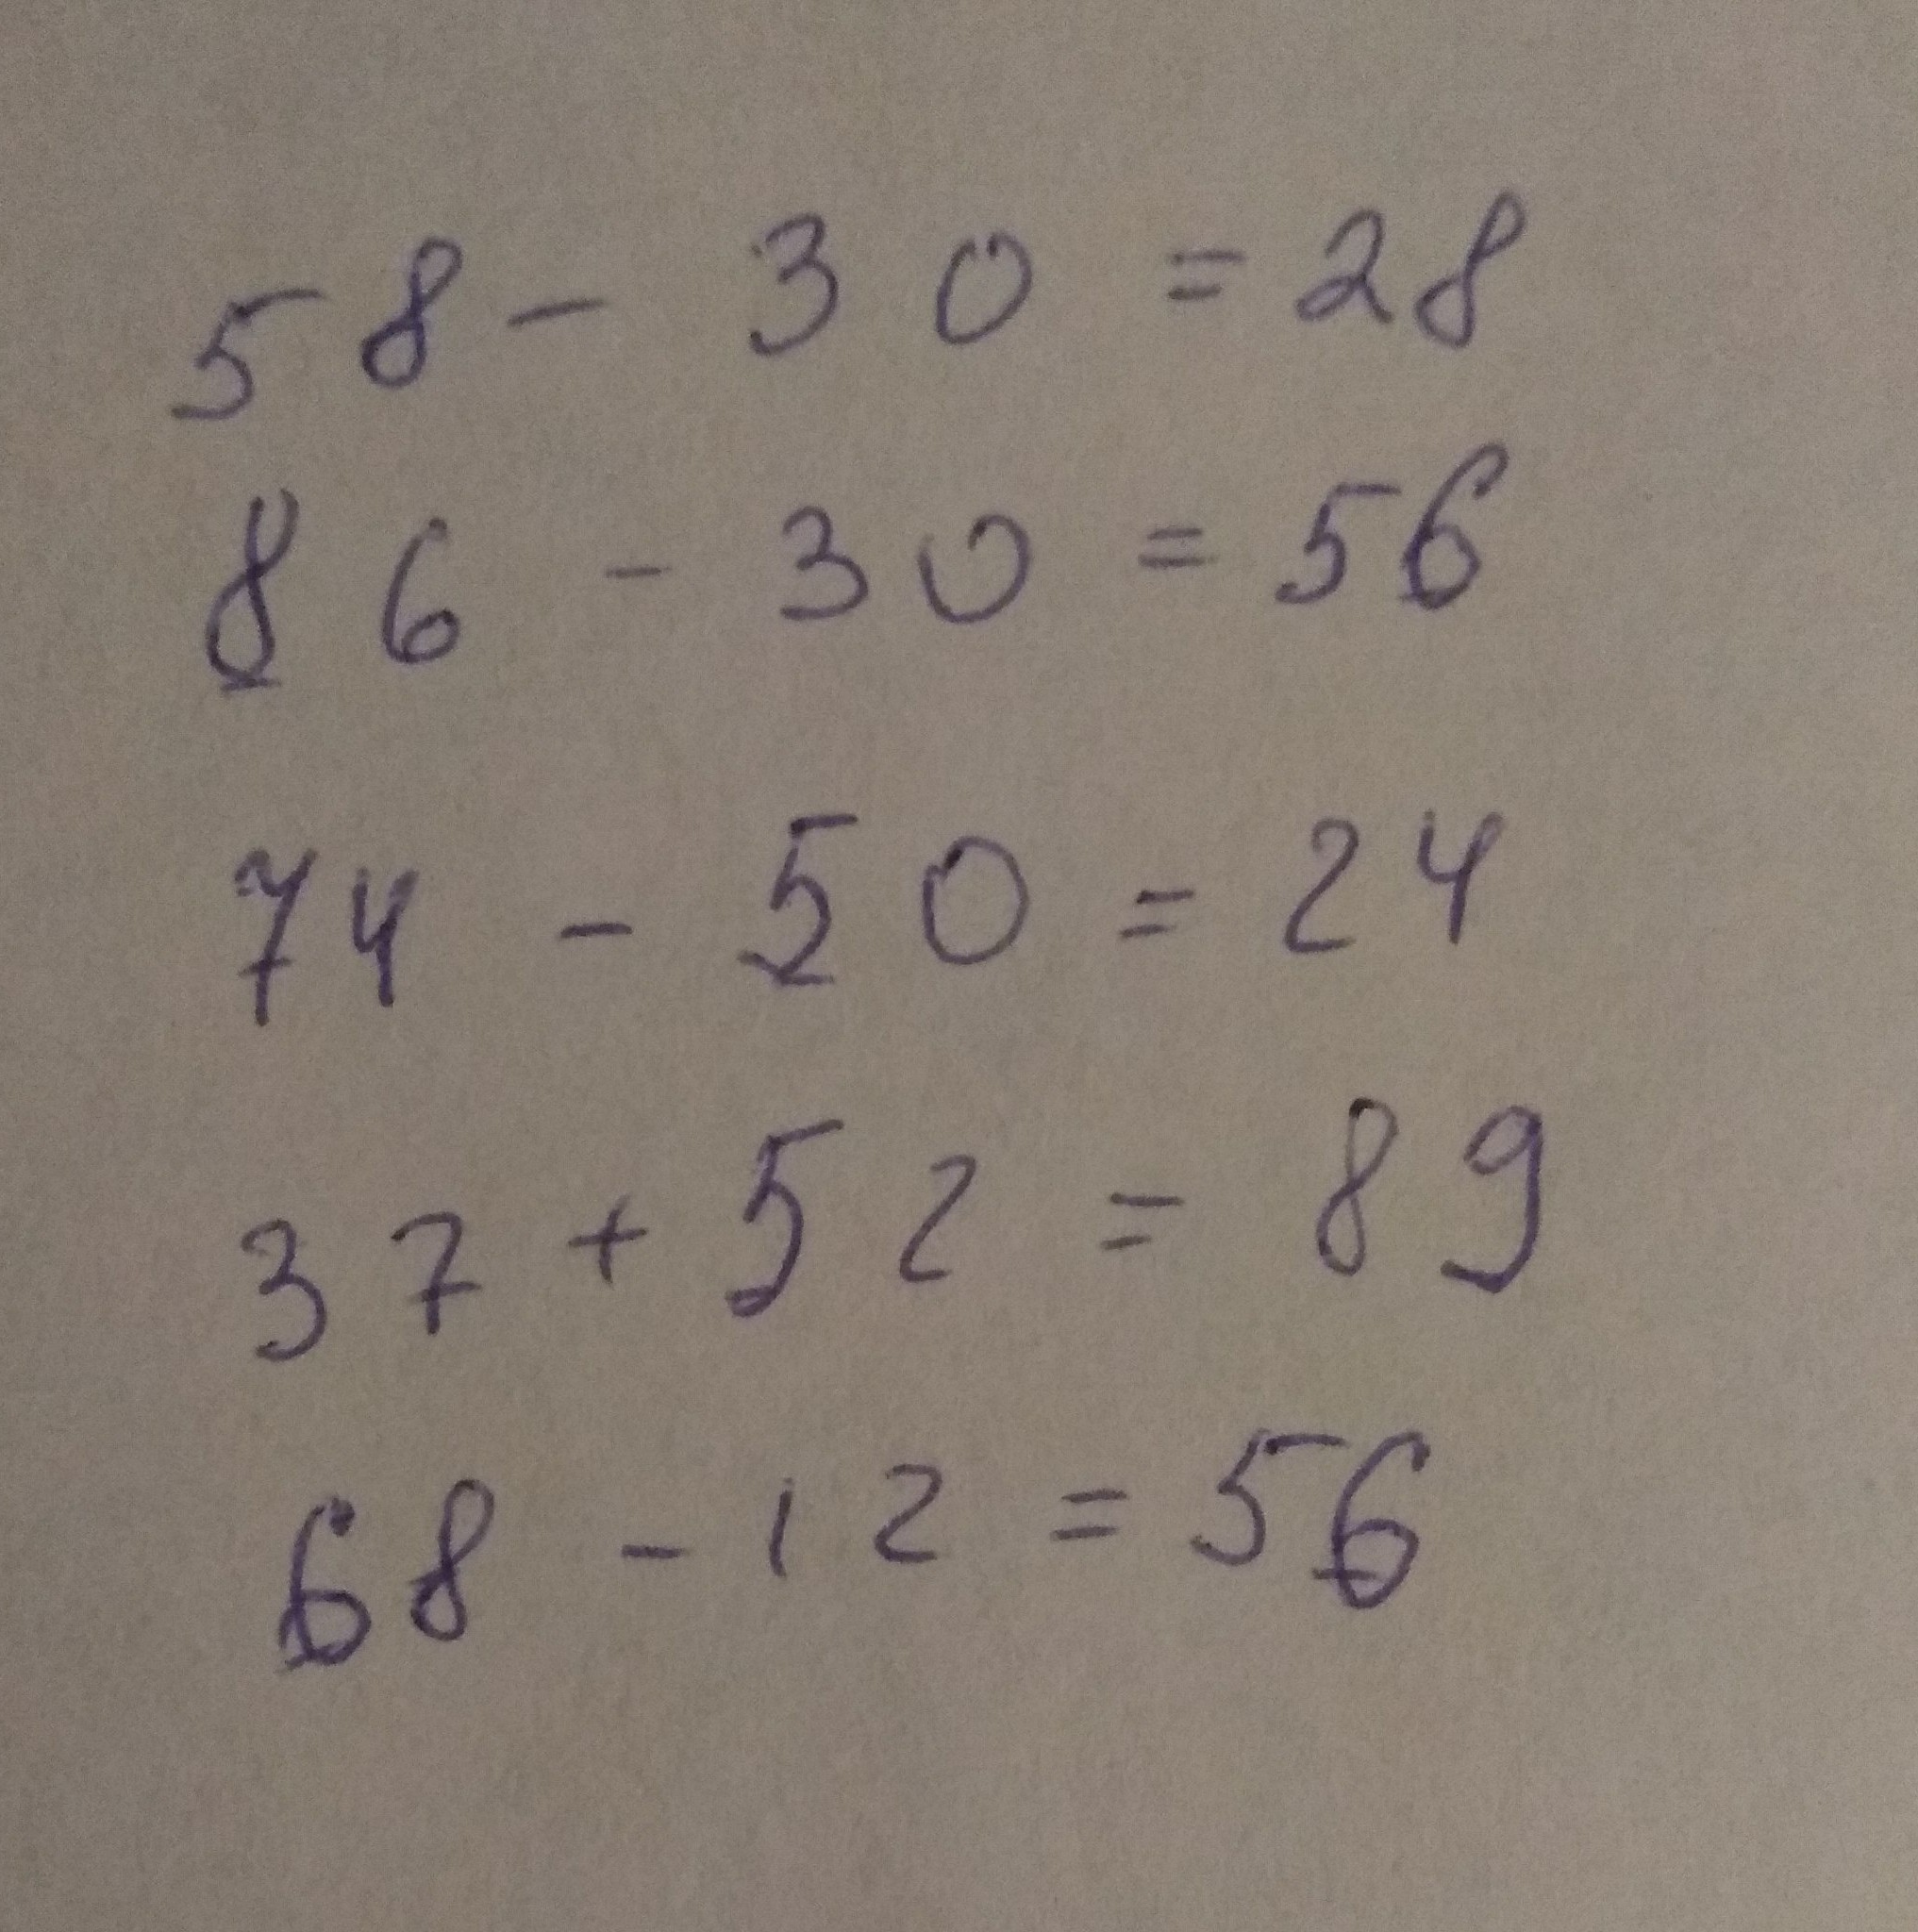 58 - 30 = 28
86 - 30 = 56
74 - 50 = 24
37 + 52 = 89
68 - 12 = 56